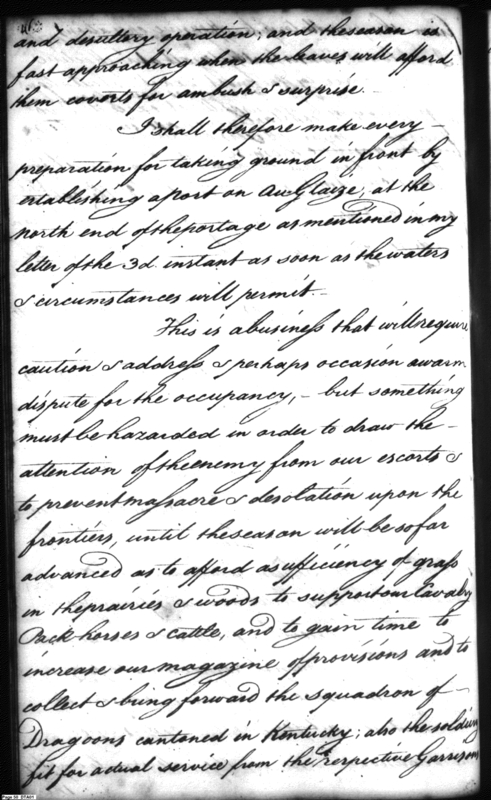 and desultory operation; and the season is
fast approaching when the leaves will afford
them coverts for ambush & surprise.
I shall therefore make every -
preparation for taking ground in front by
establishing a post on Au Glaize, at the
north end of the portage as mentioned in my
letter of the 3d. instant as soon as the waters
& circumstances will permit. -
This is a business that will require
caution & address & perhaps occasion a warm
dispute for the occupancy, - but something
must be hazarded in order to draw the -
attention of the enemy from our escorts &
to prevent massacre & desolation upon the
frontiers, until the season will be so far
advanced as to afford a sufficiency of grass
in the prairies & woods to support our Cavalry
Pack horses & cattle, and to gain time to
increase our magazine of provisions and to
collect & bring forward the squadron of -
Dragoons cantoned in Kentucky; also the soldiery
fit for actual service from the respective Garrisons